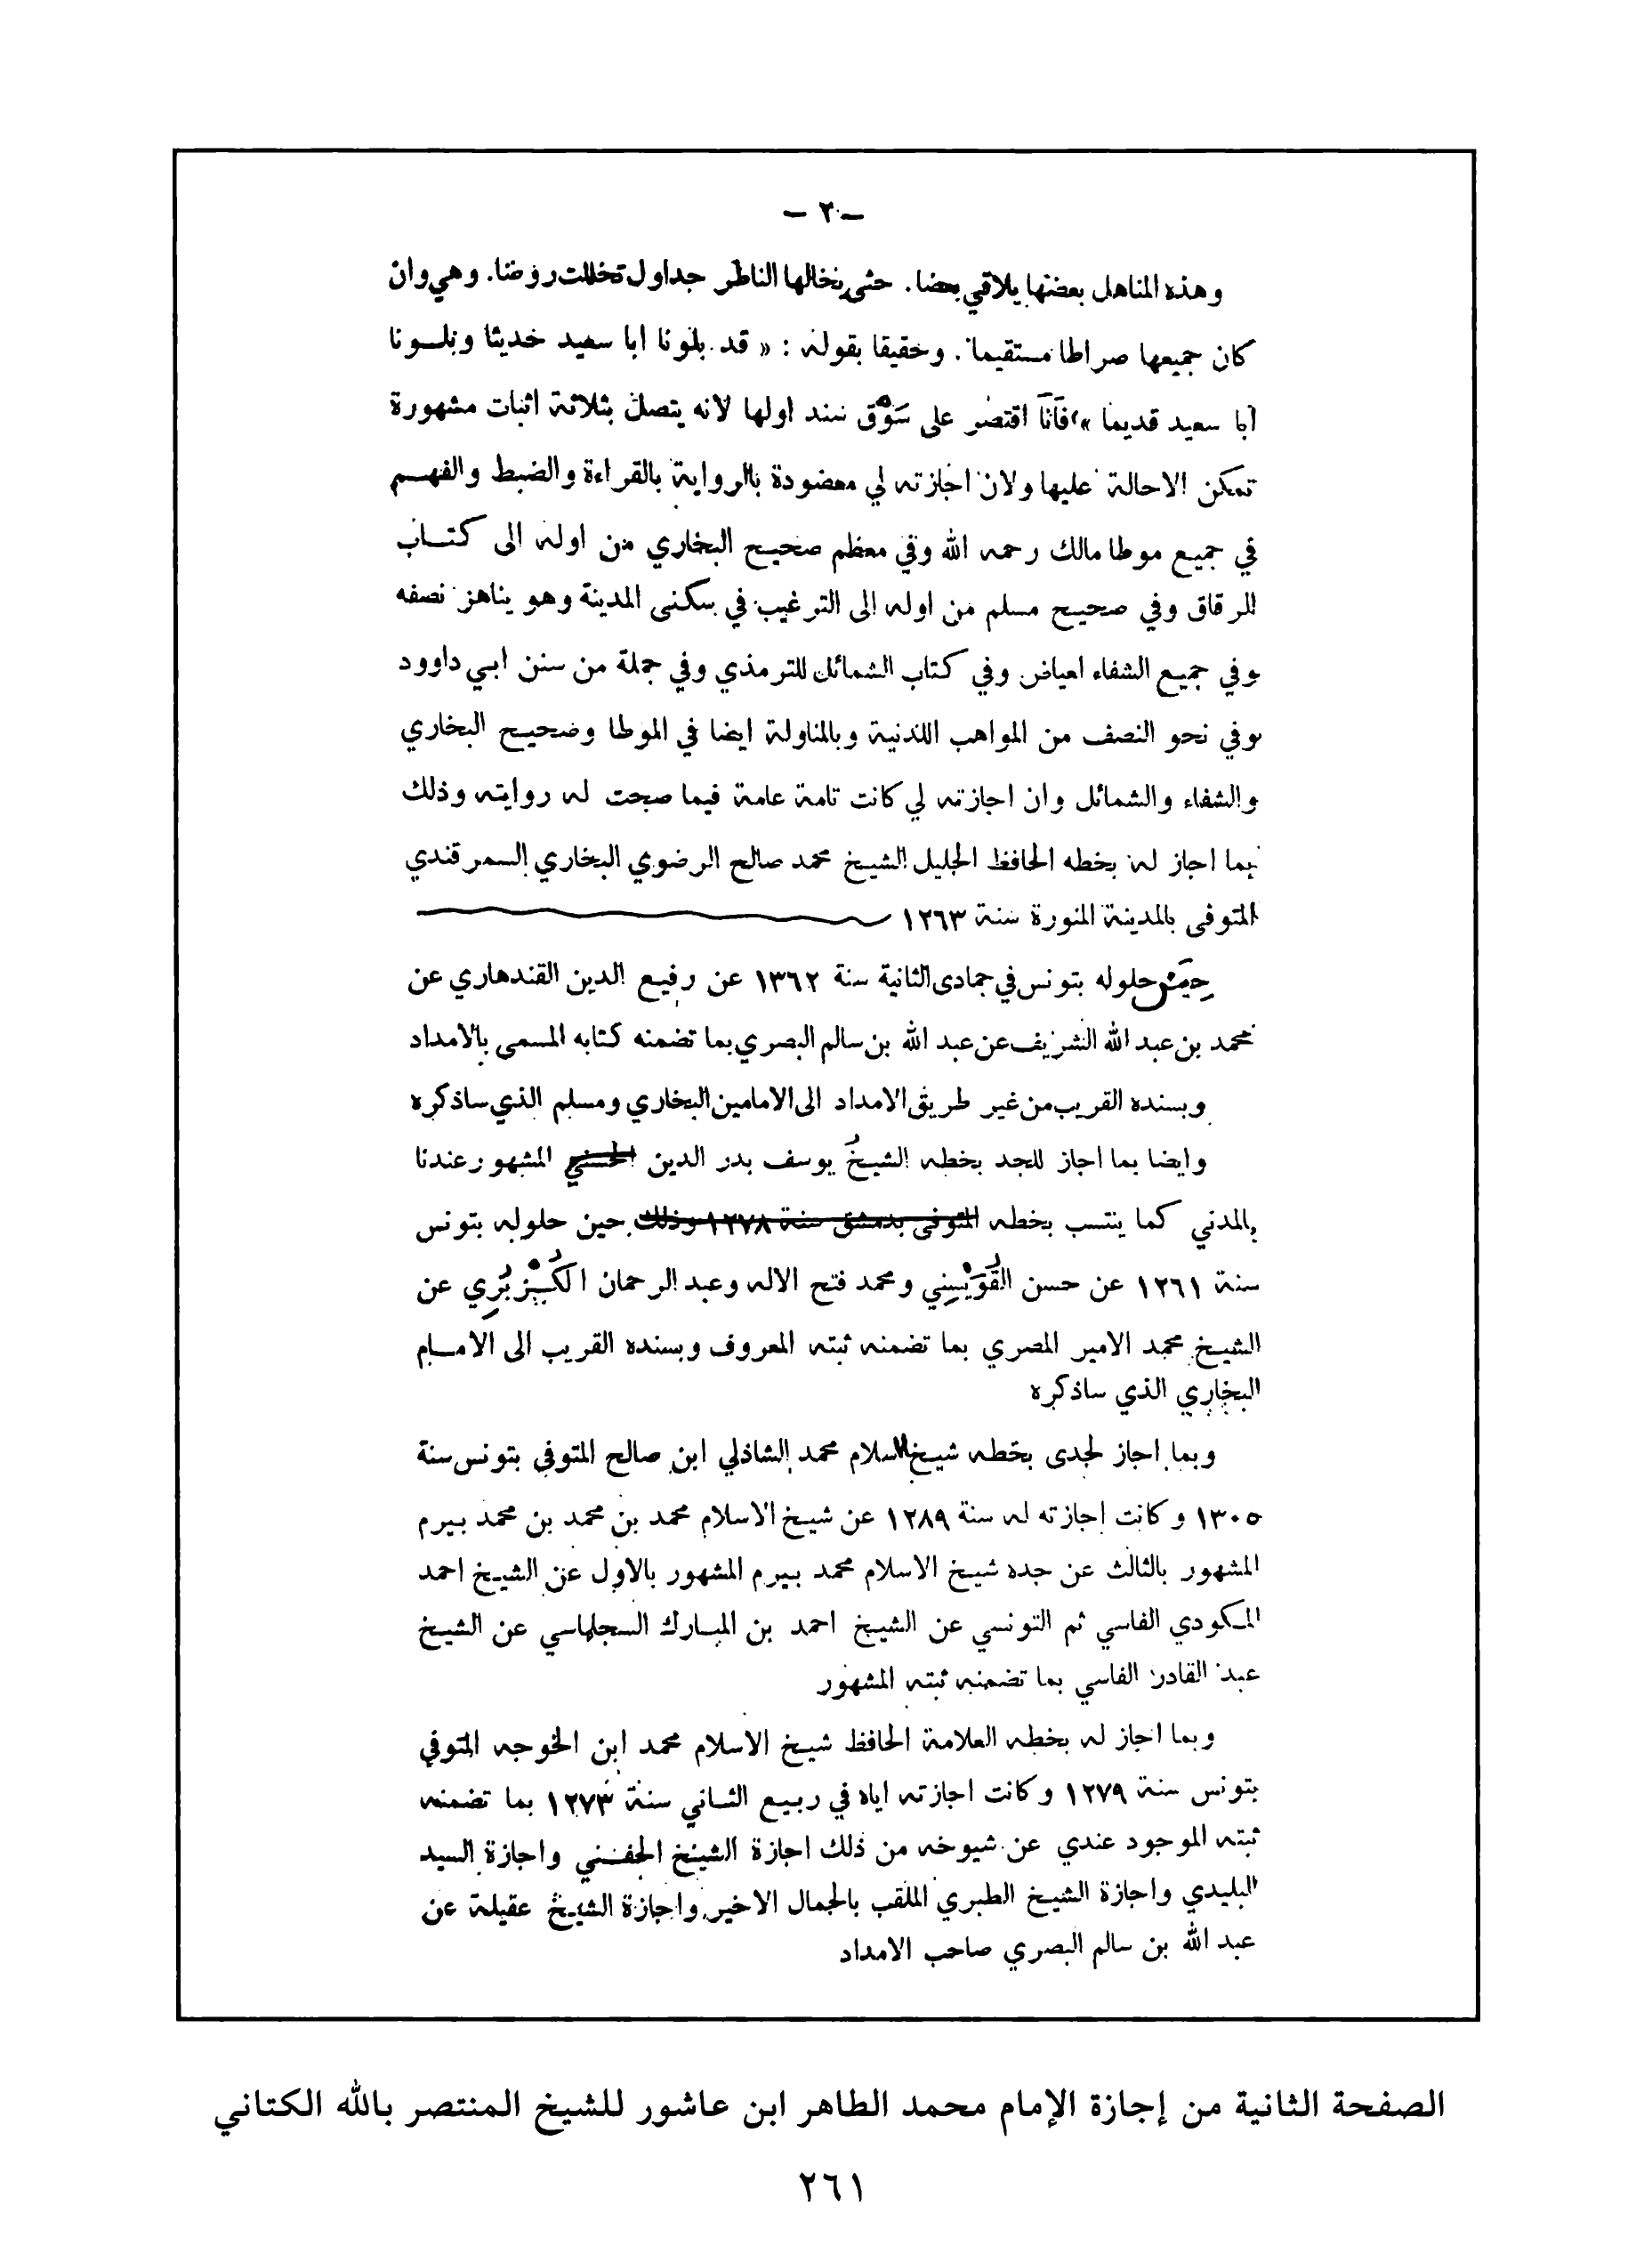 — ٢ —
وهذه المناهل بعضها يلاقي بعضا. حتى يخالها الناظر جداول تخللت روضا. وهي وان
كان جميعها صراطا مستقيما. وحقيقا بقوله : « قد بلونا ابا سعيد حديثا وبلـونا
أبا سعيد قديما » فأنا اقتصر على سَوْق سند اولها لأنه يتصل بثلاثة اثبات مشهورة
تمكن الاحالة عليها ولان اجازته لي معضودة بالرواية بالقراءة والضبط والفهـم
في جميع موطا مالك رحمه الله وفي معظم صحيح البخاري من اوله الى كتـاب
الرقاق وفي صحيح مسلم من اوله الى الترغيب في سكنى المدينة وهو يناهز نصفه
وفي جميع الشفاء لعياض وفي كتاب الشمائل للترمذي وفي جملة من سنن ابي داوود
وفي نحو النصف من المواهب اللدنية وبالمناولة ايضا في الموطا وصحيح البخاري
والشفاء والشمائل وان اجازته لي كانت تامة عامة فيما صحت له روايته وذلك
بما اجاز له بخطه الحافظ الجليل الشيخ محمد صالح الرضوي البخاري السمرقندي
المتوفى بالمدينة المنورة سنة ١٢٦٣
حين حلوله بتونس في جمادى الثانية سنة ١٣٦٢ عن رفيع الدين القندهاري عن
محمد بن عبد الله الشريف عن عبد الله بن سالم البصري بما تضمنه كتابه المسمى بالامداد
وبسنده القريب من غير طريق الامداد الى الامامين البخاري ومسلم الذي ساذكره
وايضا بما اجاز للجد بخطه الشيخ يوسف بدر الدين الحسني المشهور عندنا
بالمدني كما ينتسب بخطه المتوفى بدمشق سنة ١٢٧٨ وذلك حين حلوله بتونس
سنة ١٢٦١ عن حسن القُوَيْسِني ومحمد فتح الاله وعبد الرحمان الكُزْبَرِي عن
الشيخ محمد الامير المصري بما تضمنه ثبته المعروف وبسنده القريب الى الامـام
البخاري الذي ساذكره
وبما اجاز لجدى بخطه شيخ الاسلام محمد الشاذلي ابن صالح المتوفى بتونس سنة
١٣٠٥ وكانت إجازته له سنة ١٢٨٩ عن شيخ الاسلام محمد بن محمد بن محمد بيرم
المشهور بالثالث عن جده شيخ الاسلام محمد بيرم المشهور بالاول عن الشيخ احمد
المكودي الفاسي ثم التونسي عن الشيخ احمد بن المبارك السجلماسي عن الشيخ
عبد القادر الفاسي بما تضمنه ثبته المشهور
وبما اجاز له بخطه العلامة الحافظ شيخ الاسلام محمد ابن الخوجه المتوفي
بتونس سنة ١٢٧٩ وكانت اجازته اياه في ربيع الثـاني سنة ١٢٧٣ بما تضمنه
ثبته الموجود عندي عن شيوخه من ذلك اجازة الشيخ الحفـني واجازة السيد
البليدي واجازة الشيخ الطبري الملقب بالجمال الاخير واجازة الشيخ عقيلة عن
عبد الله بن سالم البصري صاحب الامداد
الصفحة الثانية من إجازة الإمام محمد الطاهر ابن عاشور للشيخ المنتصر بالله الكتاني
٢٦١